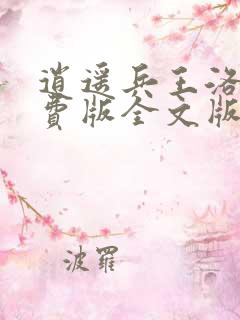 逍遥兵王洛
费版全文版
波罗